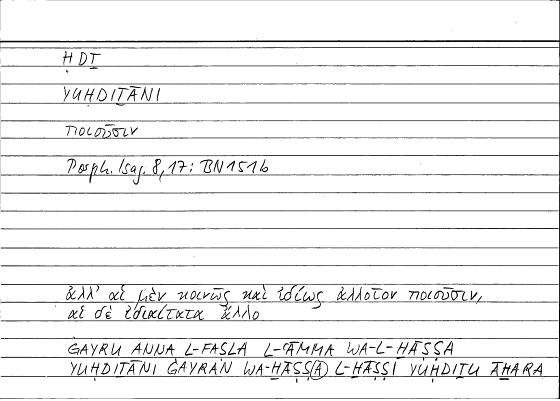 ḤDṮ
YUḤDIṮĀNI
ποιοῦσιν
Porph. Isag. 8,17: BN 151b
ἀλλ' αἱ μὲν κοινῶς καὶ ἰδίως ἀλλοῖον ποιοῦσιν,
αἱ δὲ ἰδιαίτατα ἄλλο
ĠAYRU ANNA L-FAṢLA L-ʿĀMMA WA-L-ḪĀṢṢA
YUḤDIṮĀNI ĠAYRAN WA-ḪĀṢṢ(A) L-ḪĀṢṢI YUḤDIṮU ĀḪARA